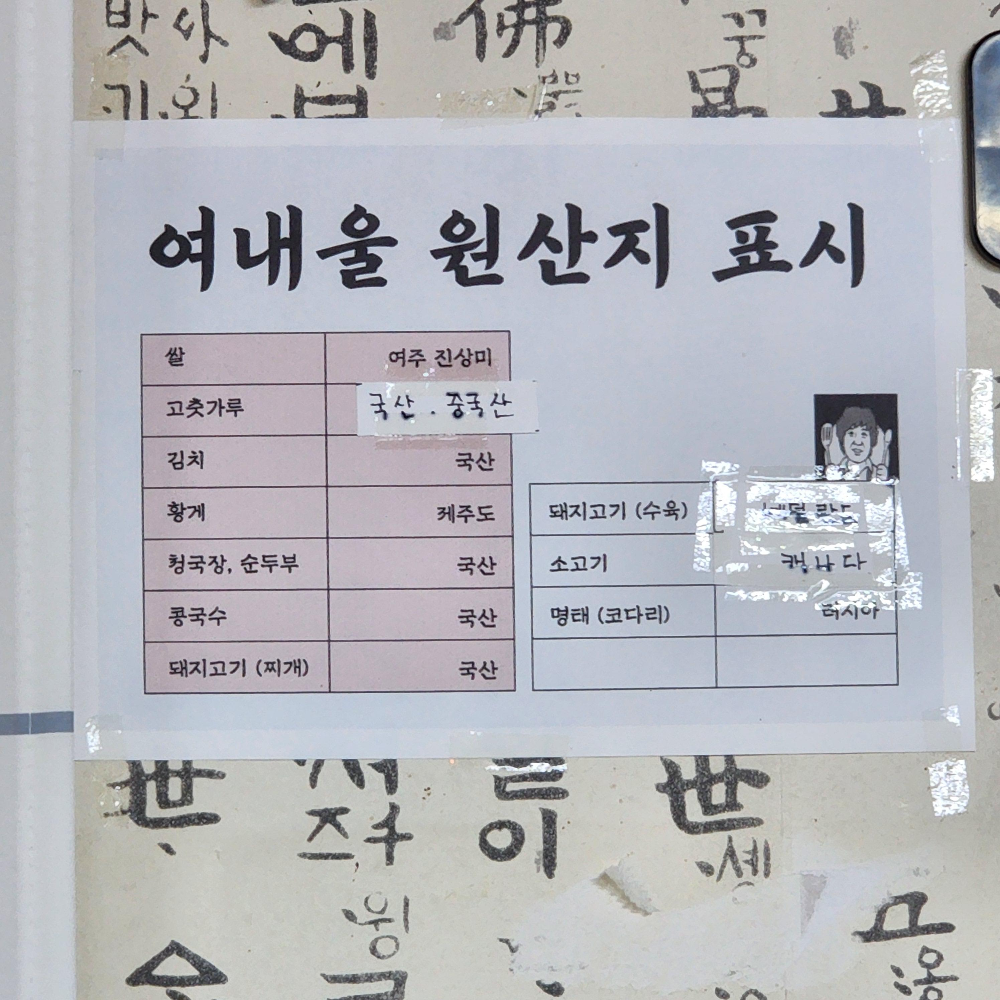 밧 사
에
佛
꿍
여내울 원산지 표시
쌀 여주 진상미
고춧가루 국산 . 중국산
김치 국산
황게 제주도
청국장, 순두부 국산
콩국수 국산
돼지고기 (찌개) 국산
돼지고기 (수육) 네덜란드
소고기 캐나다
명태 (코다리) 러시아
世
이
世
솅
웡